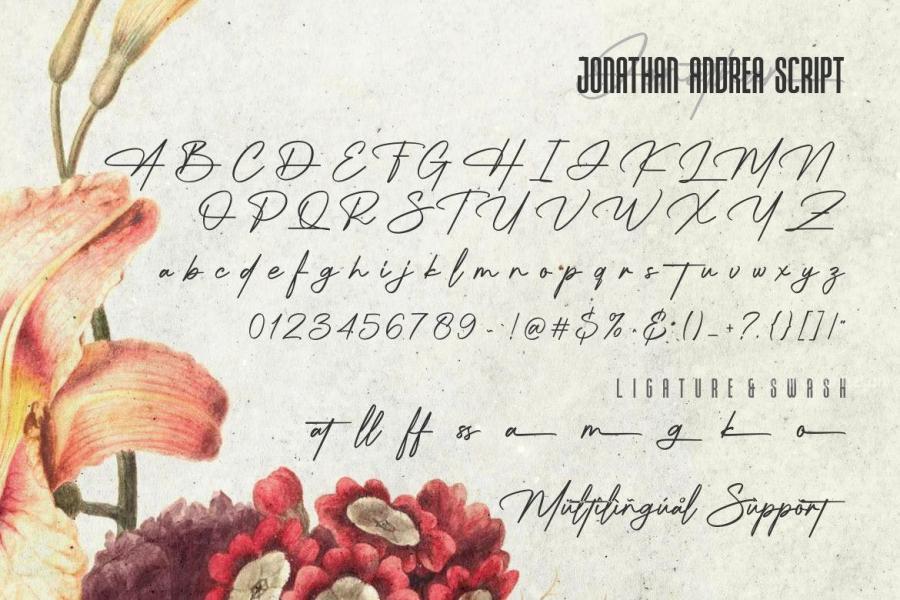 JONATHAN ANDREA SCRIPT
A B C D E F G H I J K L M N
O P Q R S T U V W X Y Z
a b c d e f g h i j k l m n o p q r s t u v w x y z
0 1 2 3 4 5 6 7 8 9 - . ! @ # $ % . & : ( ) _ + ? . { } [ ] / "
LIGATURE & SWASH
at ll ff ss a m g k o
Mültilingúål Support